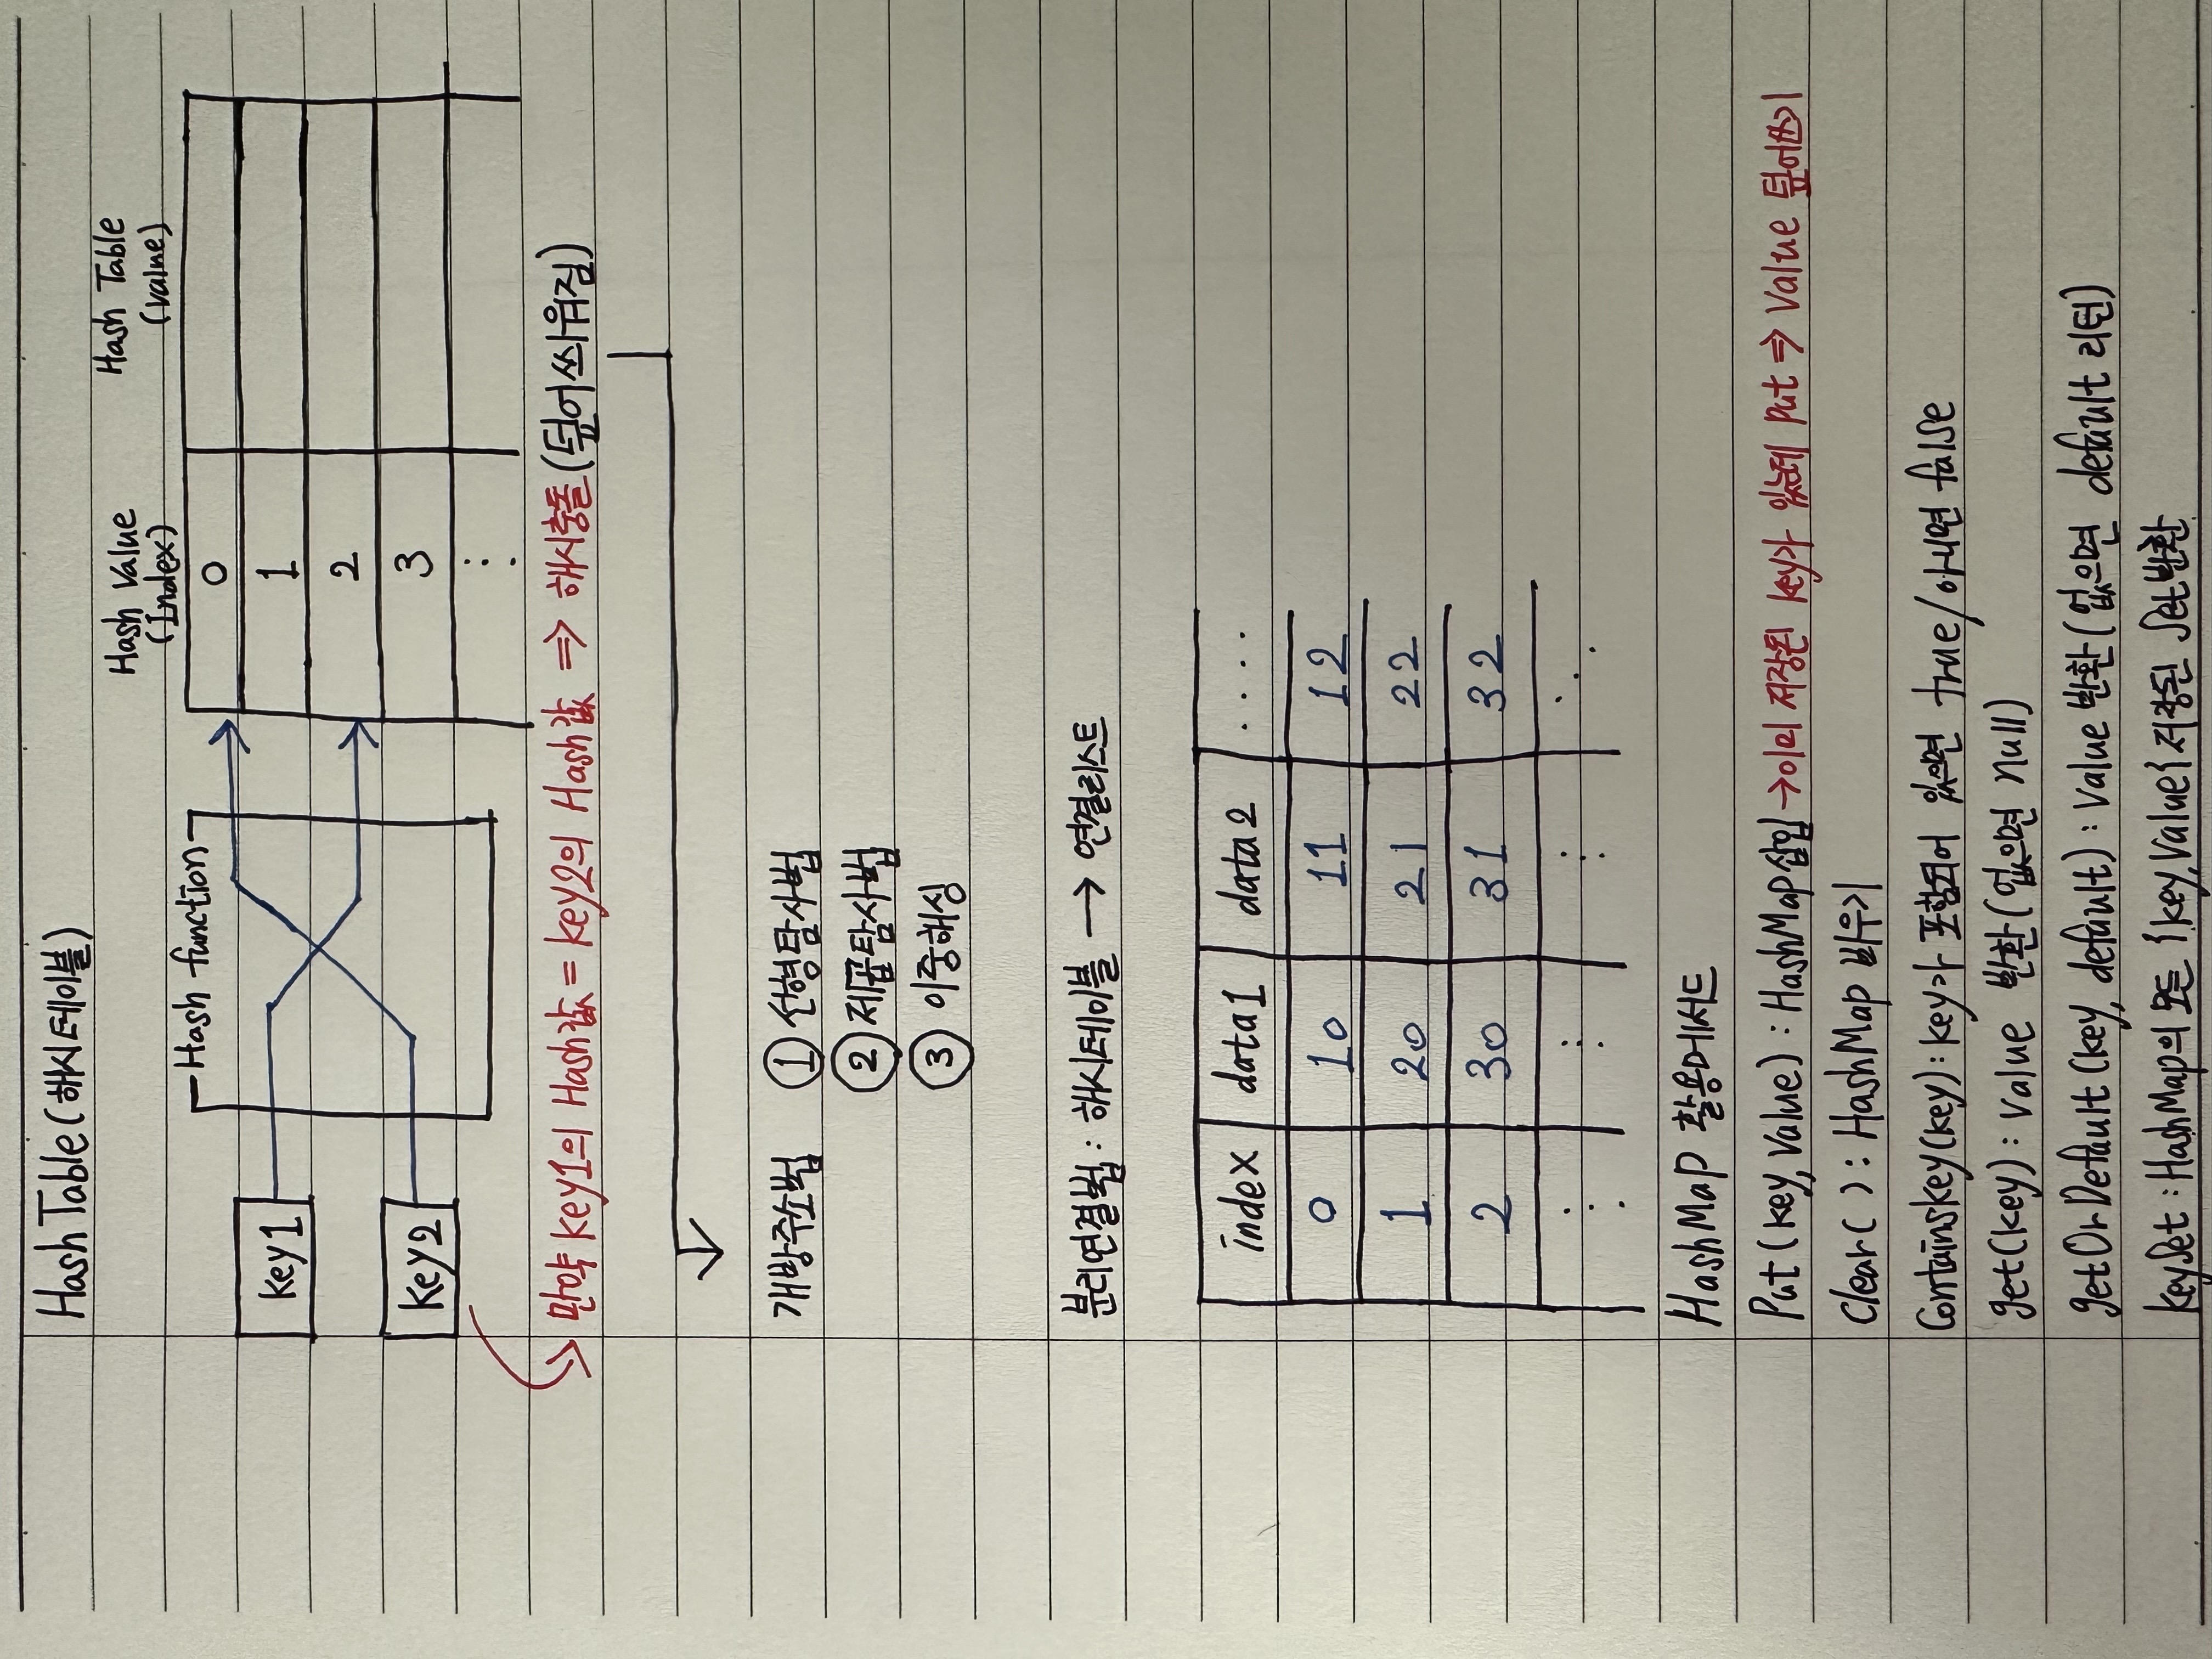 Hash Table (해시테이블)
Hash Value
(Index)
Hash Table
(value)
Hash function
key1
key2
0
1
2
3
⋮
만약 key1의 Hash값 = key2의 Hash값 ⇒ 해시충돌 (덮어씌워짐)
개방주소법 ① 선형탐사법
② 제곱탐사법
③ 이중해싱
분리연결법 : 해시테이블 → 연결리스트
index data1 data2 ....
0 10 11 12
1 20 21 22
2 30 31 32
⋮ ⋮ ⋮ ⋱
HashMap 활용메서드
Put (key, Value) : HashMap 삽입 → 이미 저장된 key가 있는데 put ⇒ Value 덮어쓰기
Clear( ) : HashMap 비우기
Containskey(key) : key가 포함되어 있으면 true/아니면 false
get(key) : Value 반환 (없으면 null)
getOrDefault (key, default) : Value 반환 (없으면 default 리턴)
keySet : HashMap의 모든 {key, Value} 저장된 Set 반환